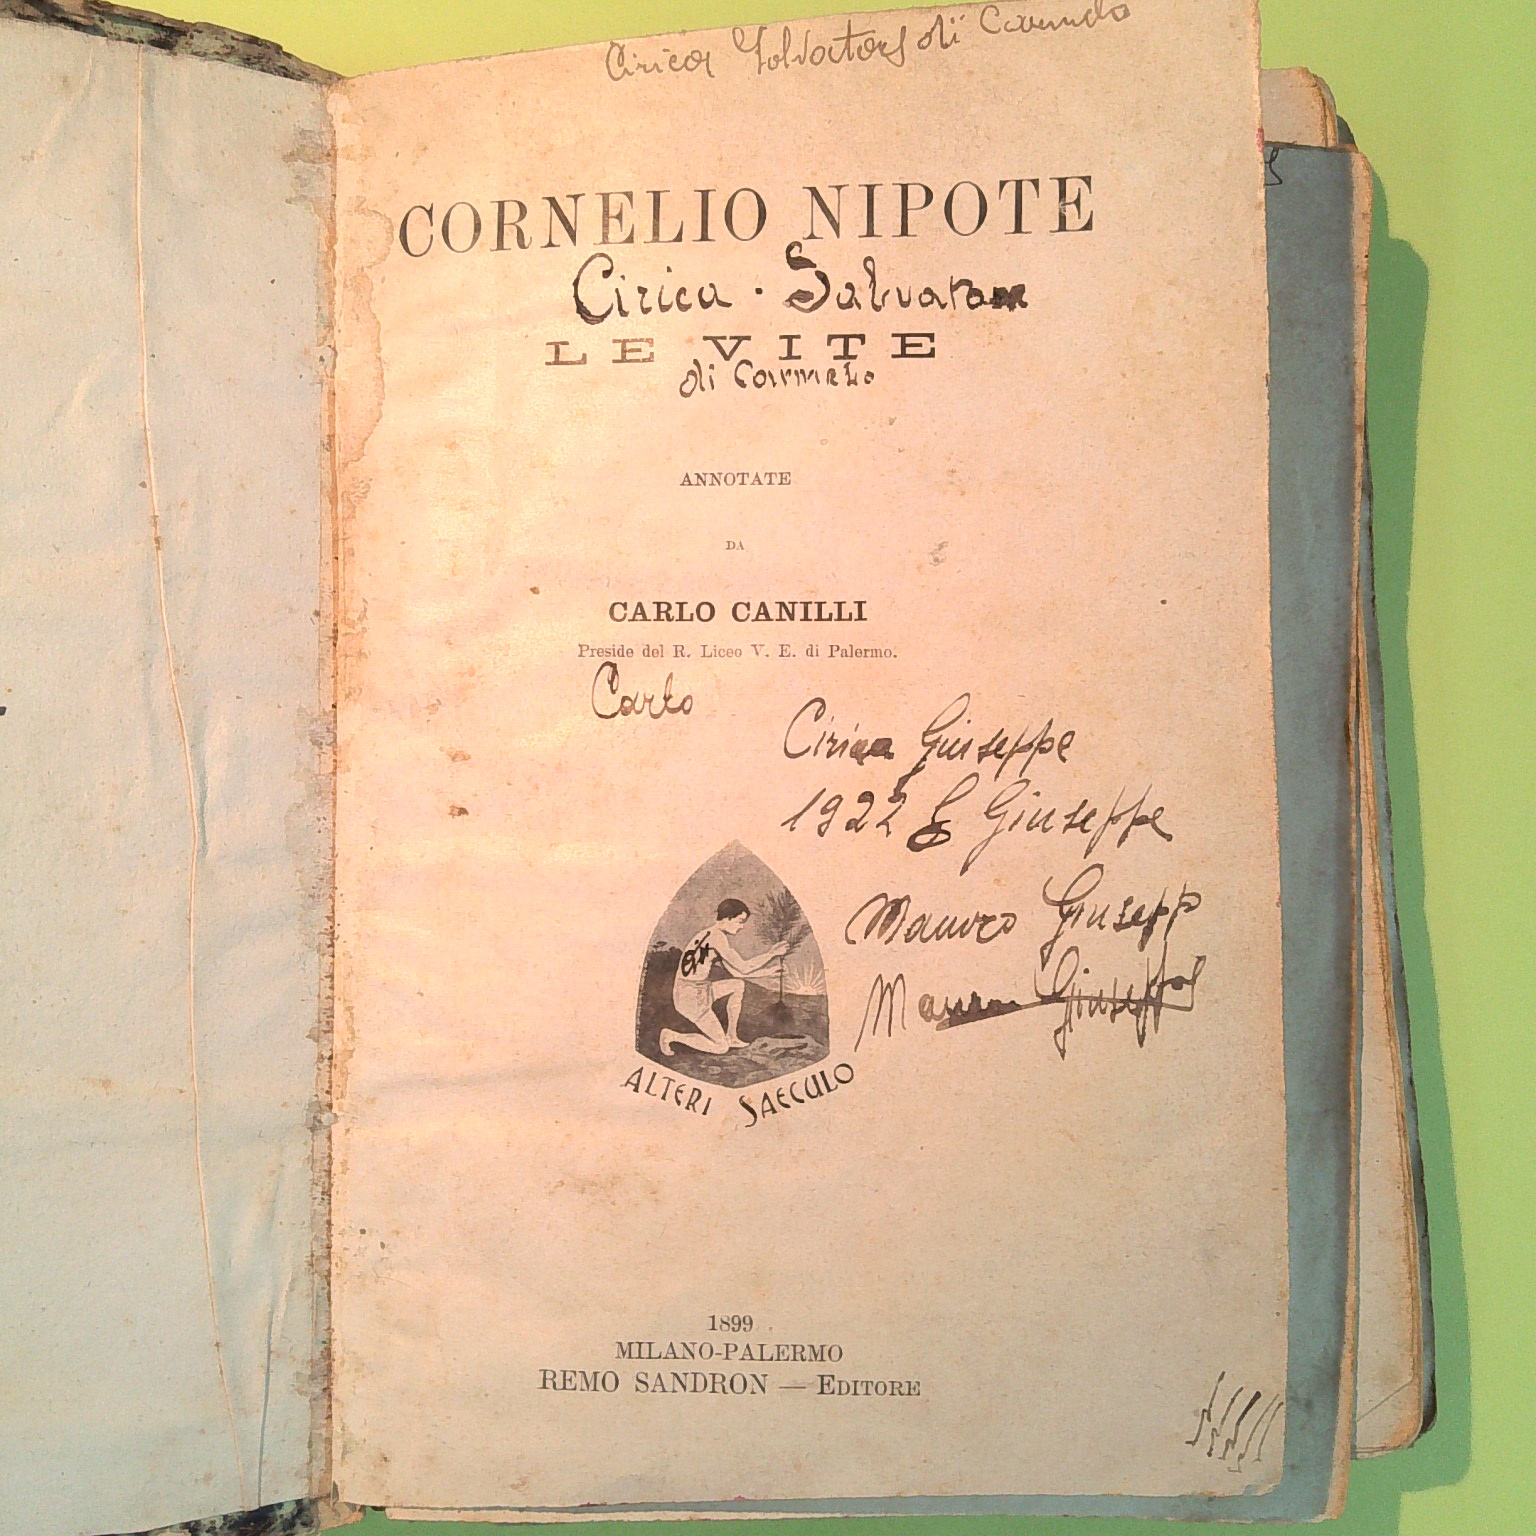 Cirica Salvatore di Carmelo
CORNELIO NIPOTE
Cirica · Salvatore
LE VITE
di Carmelo
ANNOTATE
DA
CARLO CANILLI
Preside del R. Liceo V. E. di Palermo.
Carlo
Cirica Giuseppe
1922 G Giuseppe
Mauro Giusepp
Mauro Giuseppe
ALTERI SAECULO
1899
MILANO-PALERMO
REMO SANDRON — EDITORE